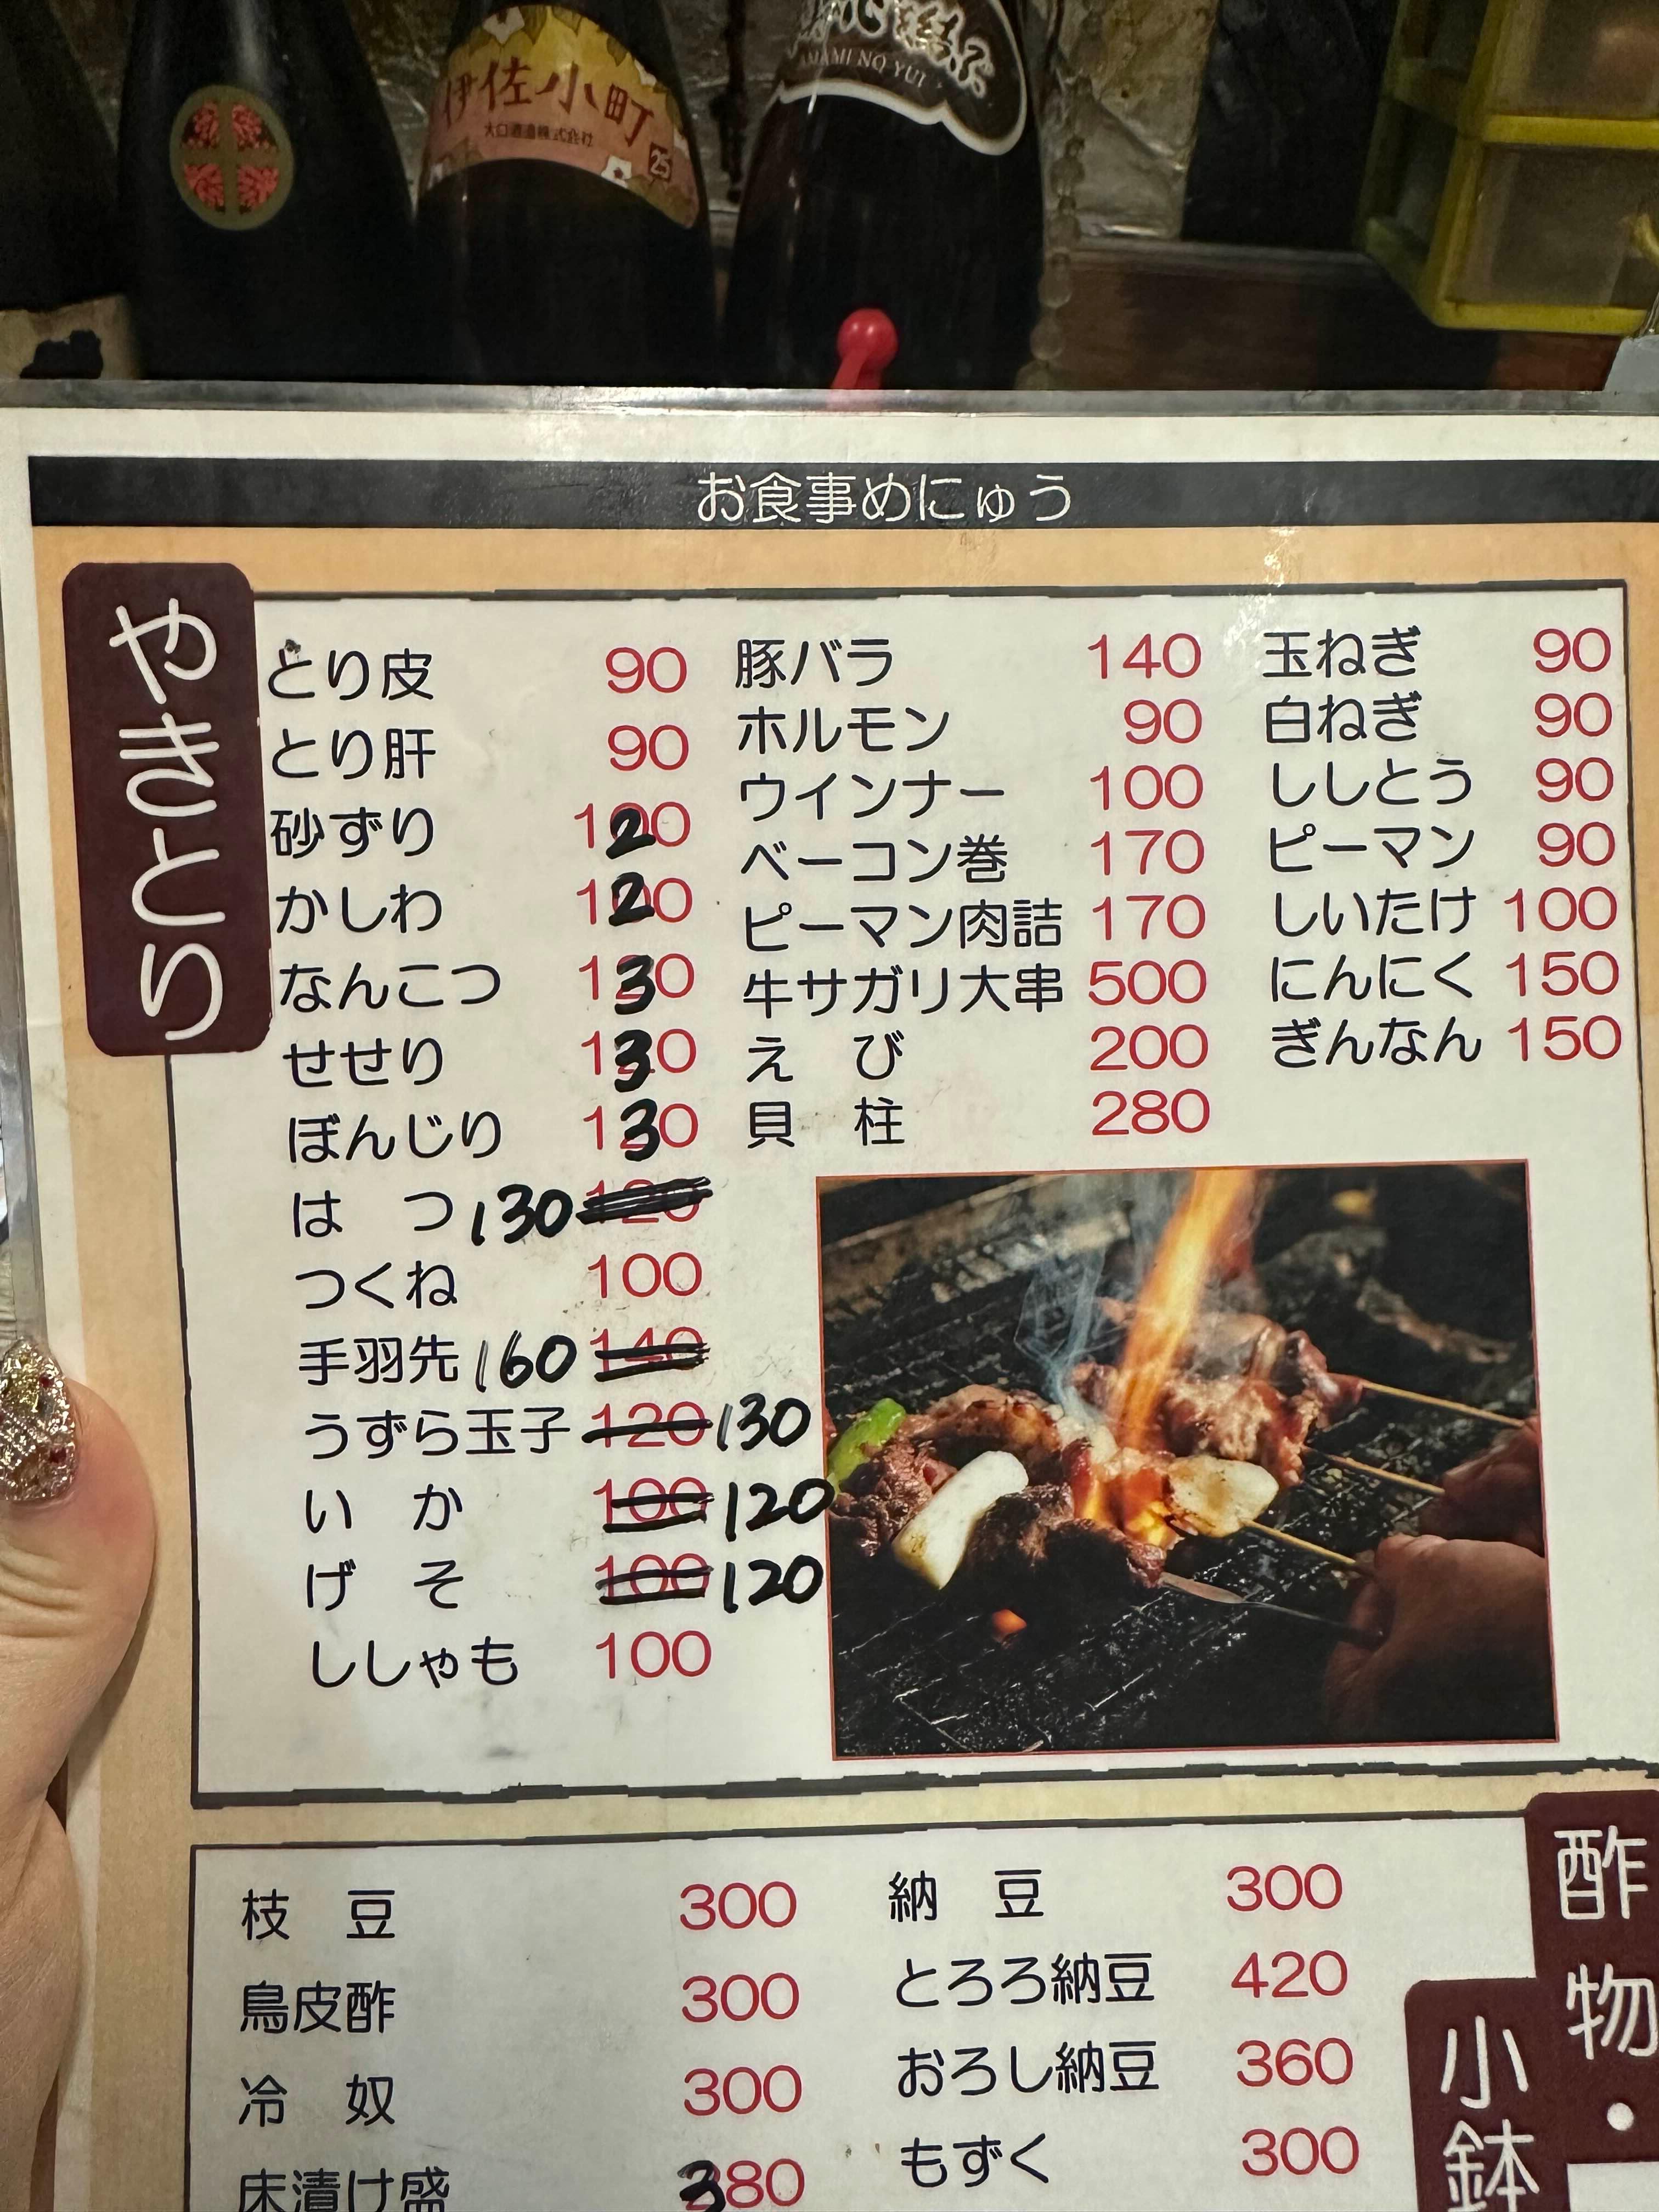 伊佐小町
大口酒造株式会社
25
AMAMI NO YUI
お食事めにゅう
やきとり
とり皮 90
とり肝 90
砂ずり 120
かしわ 120
なんこつ 130
せせり 130
ぼんじり 130
はつ 130 120
つくね 100
手羽先 160 140
うずら玉子 120 130
いか 100 120
げそ 100 120
ししゃも 100
豚バラ 140
ホルモン 90
ウインナー 100
ベーコン巻 170
ピーマン肉詰 170
牛サガリ大串 500
えび 200
貝柱 280
玉ねぎ 90
白ねぎ 90
ししとう 90
ピーマン 90
しいたけ 100
にんにく 150
ぎんなん 150
酢物・
小鉢
枝豆 300
鳥皮酢 300
冷奴 300
床漬け盛 380
納豆 300
とろろ納豆 420
おろし納豆 360
もずく 300